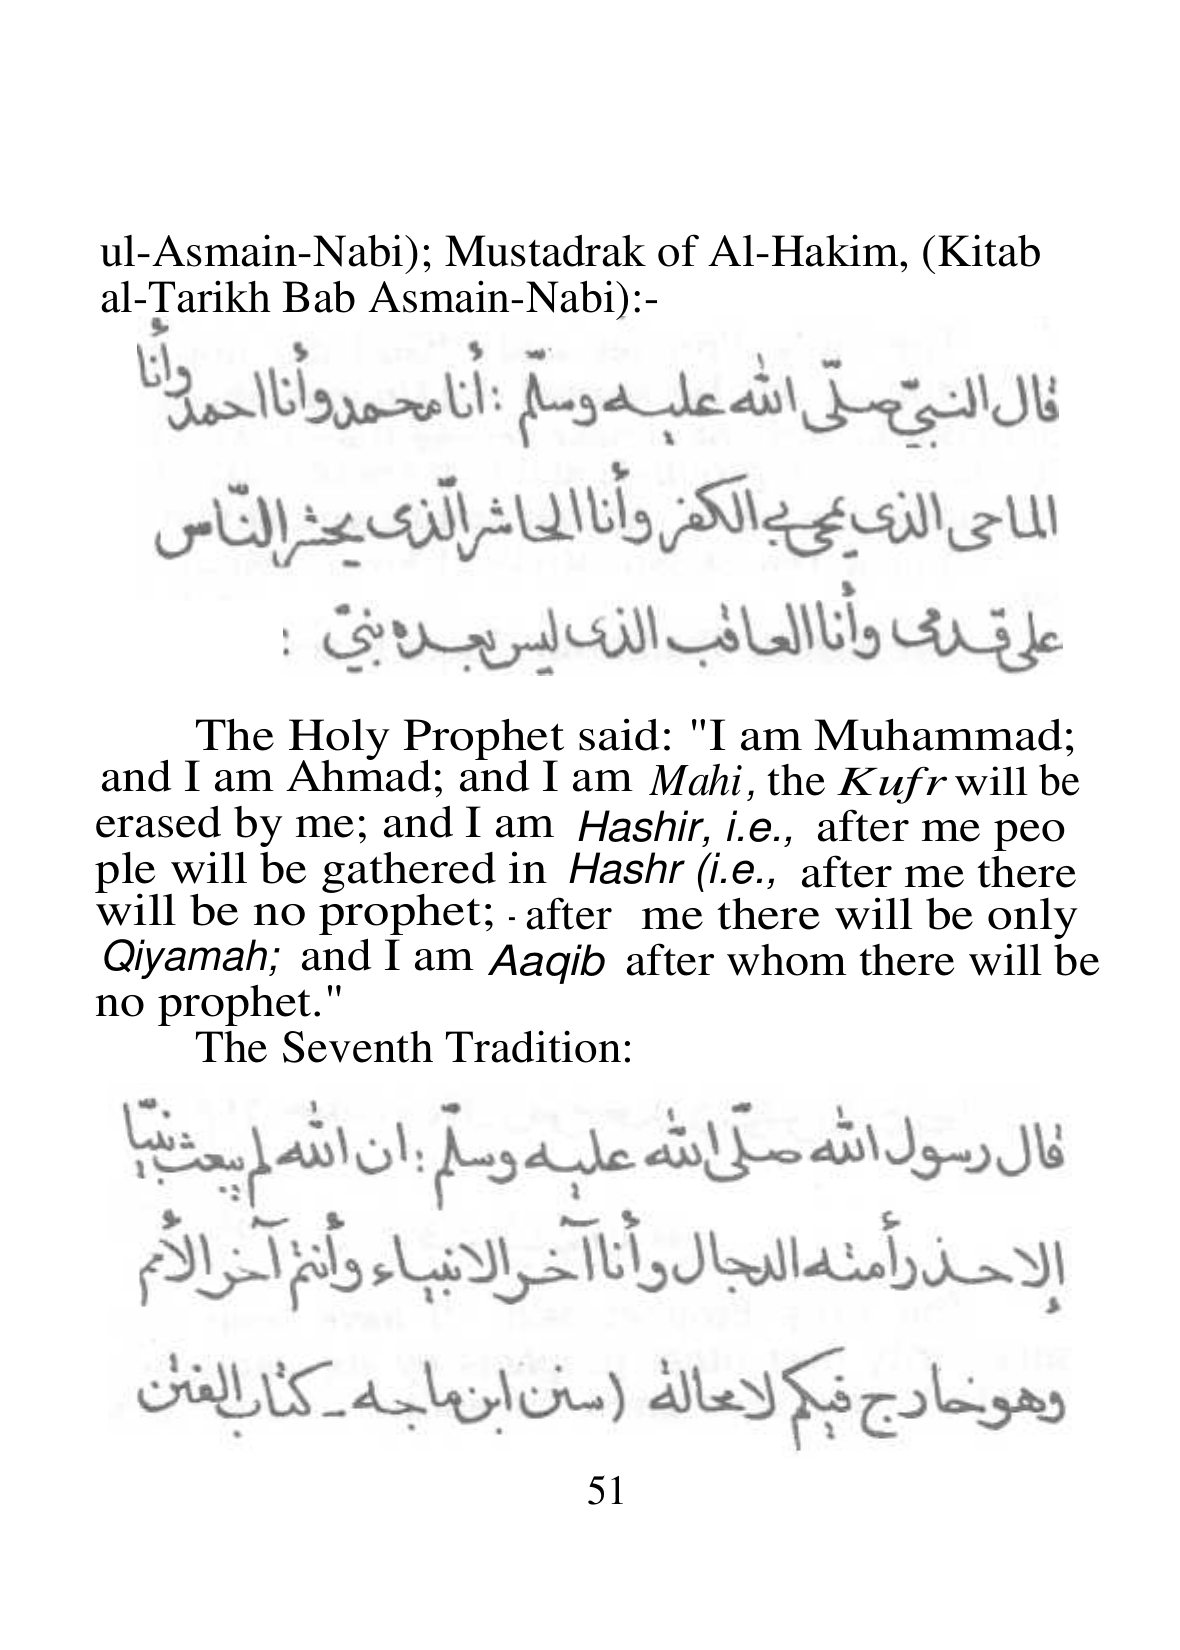 ul-Asmain-Nabi); Mustadrak of Al-Hakim, (Kitab
al-Tarikh Bab Asmain-Nabi):-
قال النبيّ صلّى الله عليه وسلّم : أنا محمد وأنا احمد وأنا
الماحى الذي يمحى بي الكفر وأنا الحاشر الّذى يحشر النّاس
على قدمى وأنا العاقب الذى ليس بعده نبيّ :
The Holy Prophet said: "I am Muhammad;
and I am Ahmad; and I am Mahi, the Kufr will be
erased by me; and I am Hashir, i.e., after me peo
ple will be gathered in Hashr (i.e., after me there
will be no prophet; - after me there will be only
Qiyamah; and I am Aaqib after whom there will be
no prophet."
The Seventh Tradition:
قال رسول الله صلّى الله عليه وسلّم : ان الله لم يبعث نبيّا
إلا حذر أمته الدجال وأنا آخر الانبياء وأنتم آخر الأمم
وهو خارج فيكم لا محالة (سنن ابن ماجه - كتاب الفتن
51